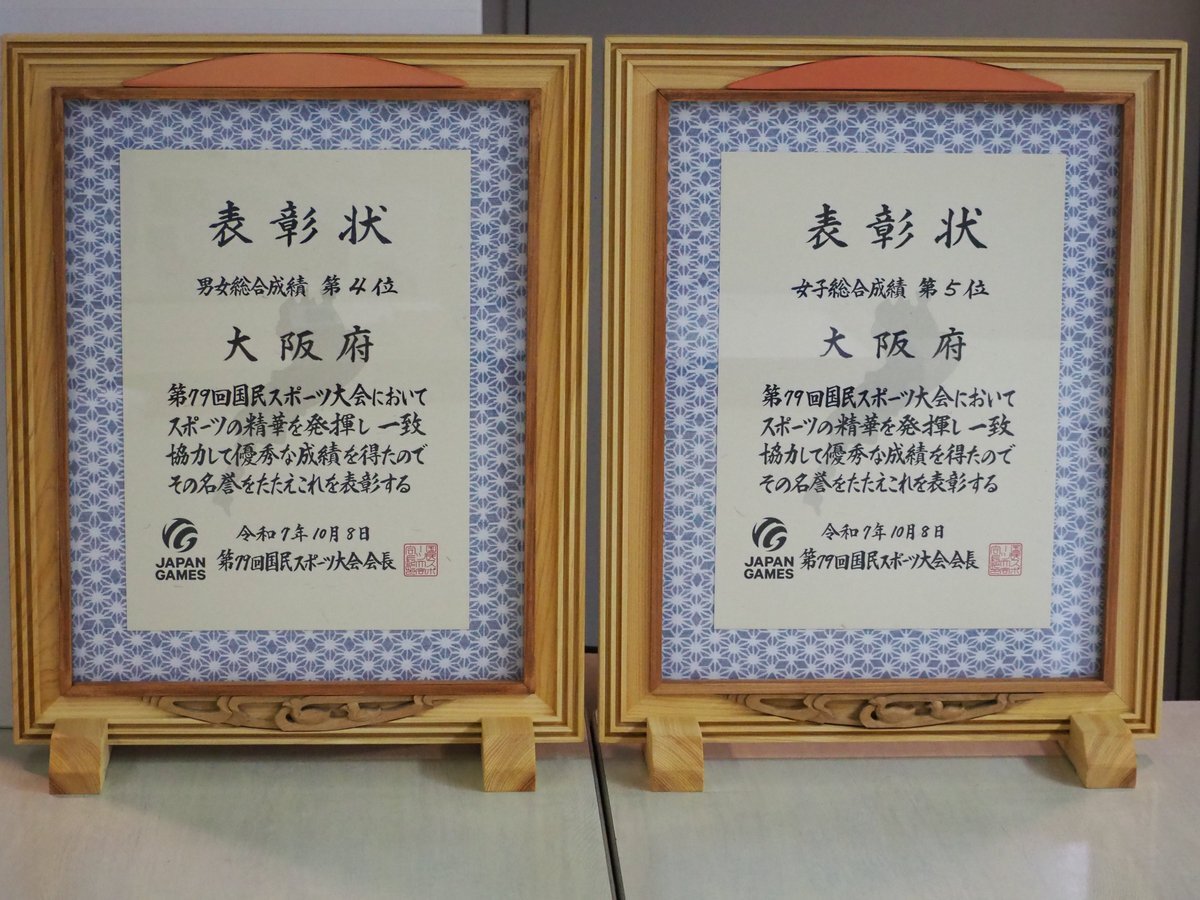 表彰状
男女総合成績 第4位
大阪府
第79回国民スポーツ大会において
スポーツの精華を発揮し一致
協力して優秀な成績を得たので
その名誉をたたえこれを表彰する
令和7年10月8日
第79回国民スポーツ大会会長
JAPAN
GAMES
表彰状
女子総合成績 第5位
大阪府
第79回国民スポーツ大会において
スポーツの精華を発揮し一致
協力して優秀な成績を得たので
その名誉をたたえこれを表彰する
令和7年10月8日
第79回国民スポーツ大会会長
JAPAN
GAMES